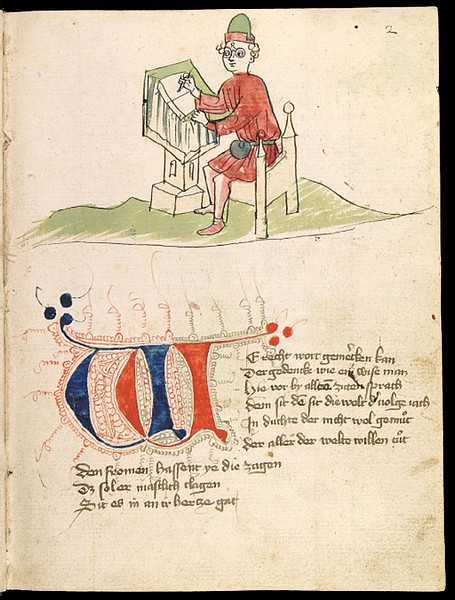 2
W
E recht wort gemercken kan
Der gedencke wie ein wise man
Hie vor by allen ziten sprach
Dem sit der welt
In duchte der nicht wol gemuͦt
der aller der welte willen tuͦt
den fromen hassent ye die zagen
Dz sol er mastlich clagen
Sit es in an ir hertze gat